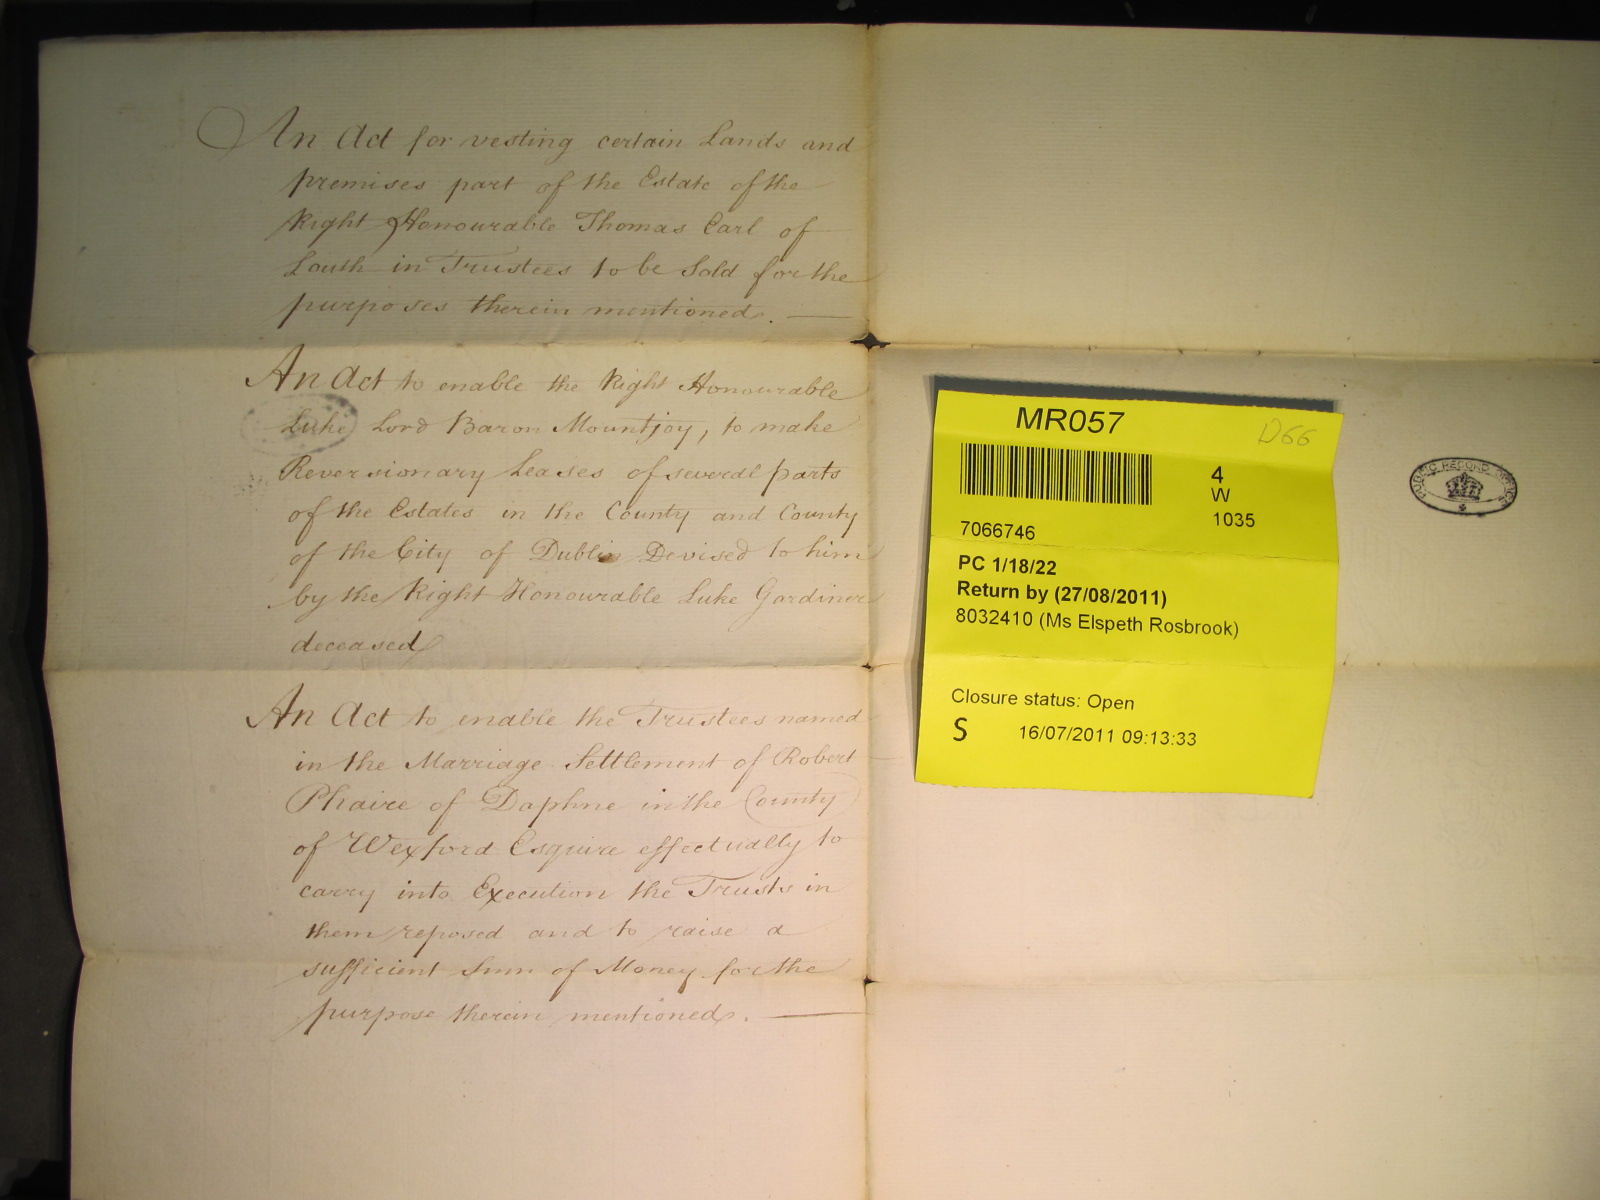 An Act for vesting certain Lands and
premises part of the Estate of the
Right Honourable Thomas Earl of
Louth in Trustees to be Sold for the
purposes therein mentioned.
An Act to enable the Right Honourable
Luke Lord Baron Mountjoy, to make
Reversionary Leases of several parts
of the Estates in the County and County
of the City of Dublin Devised to him
by the Right Honourable Luke Gardiner
deceased
An Act to enable the Trustees named
in the Marriage Settlement of Robert
Phaire of Daphne in the County
of Wexford Esquire effectually to
carry into Execution the Trusts in
them reposed and to raise a
sufficient Sum of Money for the
purpose therein mentioned.
MR057
D66
4
W
1035
7066746
PC 1/18/22
Return by (27/08/2011)
8032410 (Ms Elspeth Rosbrook)
Closure status: Open
S 16/07/2011 09:13:33
PUBLIC RECORD OFFICE